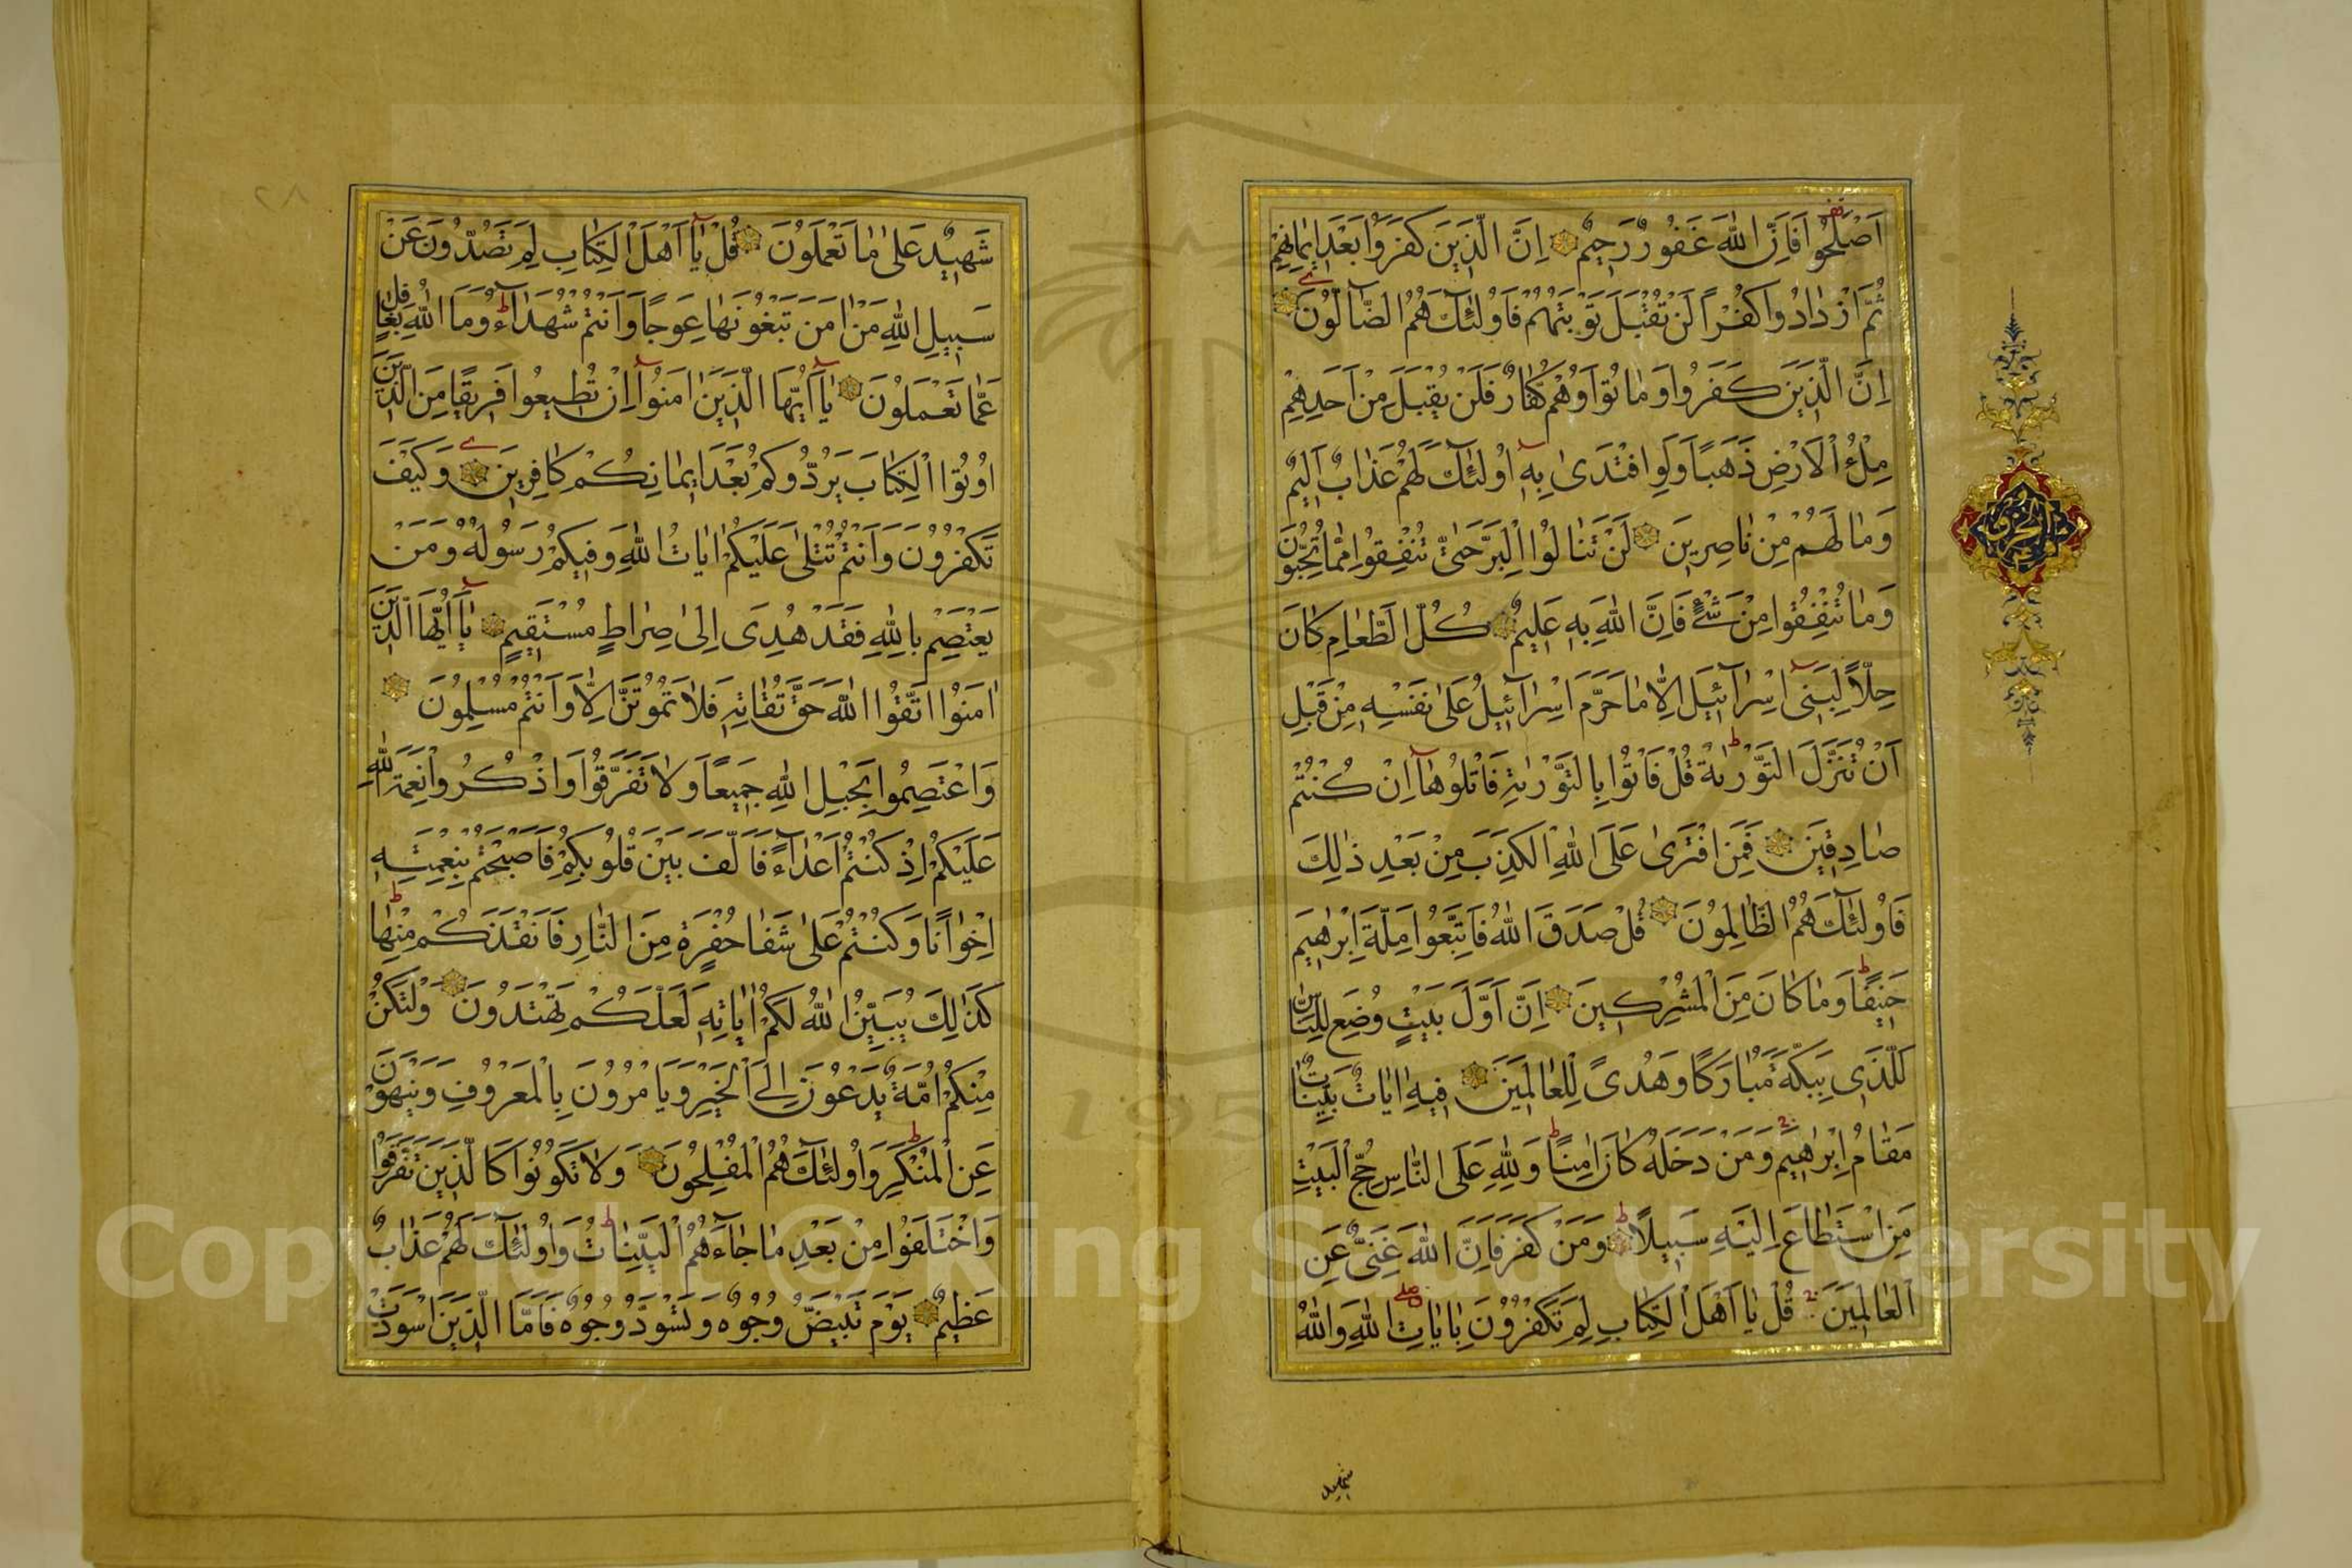 اَصْلَحُوا فَاِنَّ اللّٰهَ غَفُورٌ رَحِيمٌ اِنَّ الَّذِينَ كَفَرُوا بَعْدَ اِيمَانِهِمْ
ثُمَّ ازْدَادُوا كُفْرًا لَنْ تُقْبَلَ تَوْبَتُهُمْ فَاُولٰئِكَ هُمُ الضَّالُّونَ
اِنَّ الَّذِينَ كَفَرُوا وَمَا تُوا وَهُمْ كُفَّارٌ فَلَنْ يُقْبَلَ مِنْ اَحَدِهِمْ
مِلْءُ الْاَرْضِ ذَهَبًا وَلَوِ افْتَدٰى بِهِ اُولٰئِكَ لَهُمْ عَذَابٌ اَلِيمٌ
وَمَا لَهُمْ مِنْ نَاصِرِينَ لَنْ تَنَالُوا الْبِرَّ حَتّٰى تُنْفِقُوا مِمَّا تُحِبُّونَ
وَمَا تُنْفِقُوا مِنْ شَيْءٍ فَاِنَّ اللّٰهَ بِهِ عَلِيمٌ كُلُّ الطَّعَامِ كَانَ
حِلًّا لِبَنِى اِسْرَائِيلَ اِلَّا مَا حَرَّمَ اِسْرَائِيلُ عَلٰى نَفْسِهِ مِنْ قَبْلِ
اَنْ تُنَزَّلَ التَّوْرٰيةُ قُلْ فَاْتُوا بِالتَّوْرٰيةِ فَاتْلُوهَا اِنْ كُنْتُمْ
صَادِقِينَ فَمَنِ افْتَرٰى عَلَى اللّٰهِ الْكَذِبَ مِنْ بَعْدِ ذٰلِكَ
فَاُولٰئِكَ هُمُ الظَّالِمُونَ قُلْ صَدَقَ اللّٰهُ فَاتَّبِعُوا مِلَّةَ اِبْرٰهِيمَ
حَنِيفًا وَمَا كَانَ مِنَ الْمُشْرِكِينَ اِنَّ اَوَّلَ بَيْتٍ وُضِعَ لِلنَّاسِ
لَلَّذِى بِبَكَّةَ مُبَارَكًا وَهُدًى لِلْعَالَمِينَ فِيهِ اٰيَاتٌ بَيِّنَاتٌ
مَقَامُ اِبْرٰهِيمَ وَمَنْ دَخَلَهُ كَانَ اٰمِنًا وَلِلّٰهِ عَلَى النَّاسِ حِجُّ الْبَيْتِ
مَنِ اسْتَطَاعَ اِلَيْهِ سَبِيلًا وَمَنْ كَفَرَ فَاِنَّ اللّٰهَ غَنِىٌّ عَنِ
الْعَالَمِينَ قُلْ يَا اَهْلَ الْكِتَابِ لِمَ تَكْفُرُونَ بِاٰيَاتِ اللّٰهِ وَاللّٰهُ
شهيد
شَهِيدٌ عَلٰى مَا تَعْمَلُونَ قُلْ يَا اَهْلَ الْكِتَابِ لِمَ تَصُدُّونَ عَنْ
سَبِيلِ اللّٰهِ مَنْ اٰمَنَ تَبْغُونَهَا عِوَجًا وَاَنْتُمْ شُهَدَاءُ وَمَا اللّٰهُ بِغَافِلٍ
عَمَّا تَعْمَلُونَ يَا اَيُّهَا الَّذِينَ اٰمَنُوا اِنْ تُطِيعُوا فَرِيقًا مِنَ الَّذِينَ
اُوتُوا الْكِتَابَ يَرُدُّوكُمْ بَعْدَ اِيمَانِكُمْ كَافِرِينَ وَكَيْفَ
تَكْفُرُونَ وَاَنْتُمْ تُتْلٰى عَلَيْكُمْ اٰيَاتُ اللّٰهِ وَفِيكُمْ رَسُولُهُ وَمَنْ
يَعْتَصِمْ بِاللّٰهِ فَقَدْ هُدِىَ اِلٰى صِرَاطٍ مُسْتَقِيمٍ يَا اَيُّهَا الَّذِينَ
اٰمَنُوا اتَّقُوا اللّٰهَ حَقَّ تُقَاتِهِ فَلَا تَمُوتُنَّ اِلَّا وَاَنْتُمْ مُسْلِمُونَ
وَاعْتَصِمُوا بِحَبْلِ اللّٰهِ جَمِيعًا وَلَا تَفَرَّقُوا وَاذْكُرُوا نِعْمَةَ اللّٰهِ
عَلَيْكُمْ اِذْ كُنْتُمْ اَعْدَاءً فَاَلَّفَ بَيْنَ قُلُوبِكُمْ فَاَصْبَحْتُمْ بِنِعْمَتِهِ
اِخْوَانًا وَكُنْتُمْ عَلٰى شَفَا حُفْرَةٍ مِنَ النَّارِ فَاَنْقَذَكُمْ مِنْهَا
كَذٰلِكَ يُبَيِّنُ اللّٰهُ لَكُمْ اٰيَاتِهِ لَعَلَّكُمْ تَهْتَدُونَ وَلْتَكُنْ
مِنْكُمْ اُمَّةٌ يَدْعُونَ اِلَى الْخَيْرِ وَيَاْمُرُونَ بِالْمَعْرُوفِ وَيَنْهَوْنَ
عَنِ الْمُنْكَرِ وَاُولٰئِكَ هُمُ الْمُفْلِحُونَ وَلَا تَكُونُوا كَالَّذِينَ تَفَرَّقُوا
وَاخْتَلَفُوا مِنْ بَعْدِ مَا جَاءَهُمُ الْبَيِّنَاتُ وَاُولٰئِكَ لَهُمْ عَذَابٌ
عَظِيمٌ يَوْمَ تَبْيَضُّ وُجُوهٌ وَتَسْوَدُّ وُجُوهٌ فَاَمَّا الَّذِينَ اسْوَدَّتْ
Copyright © King Saud University
195